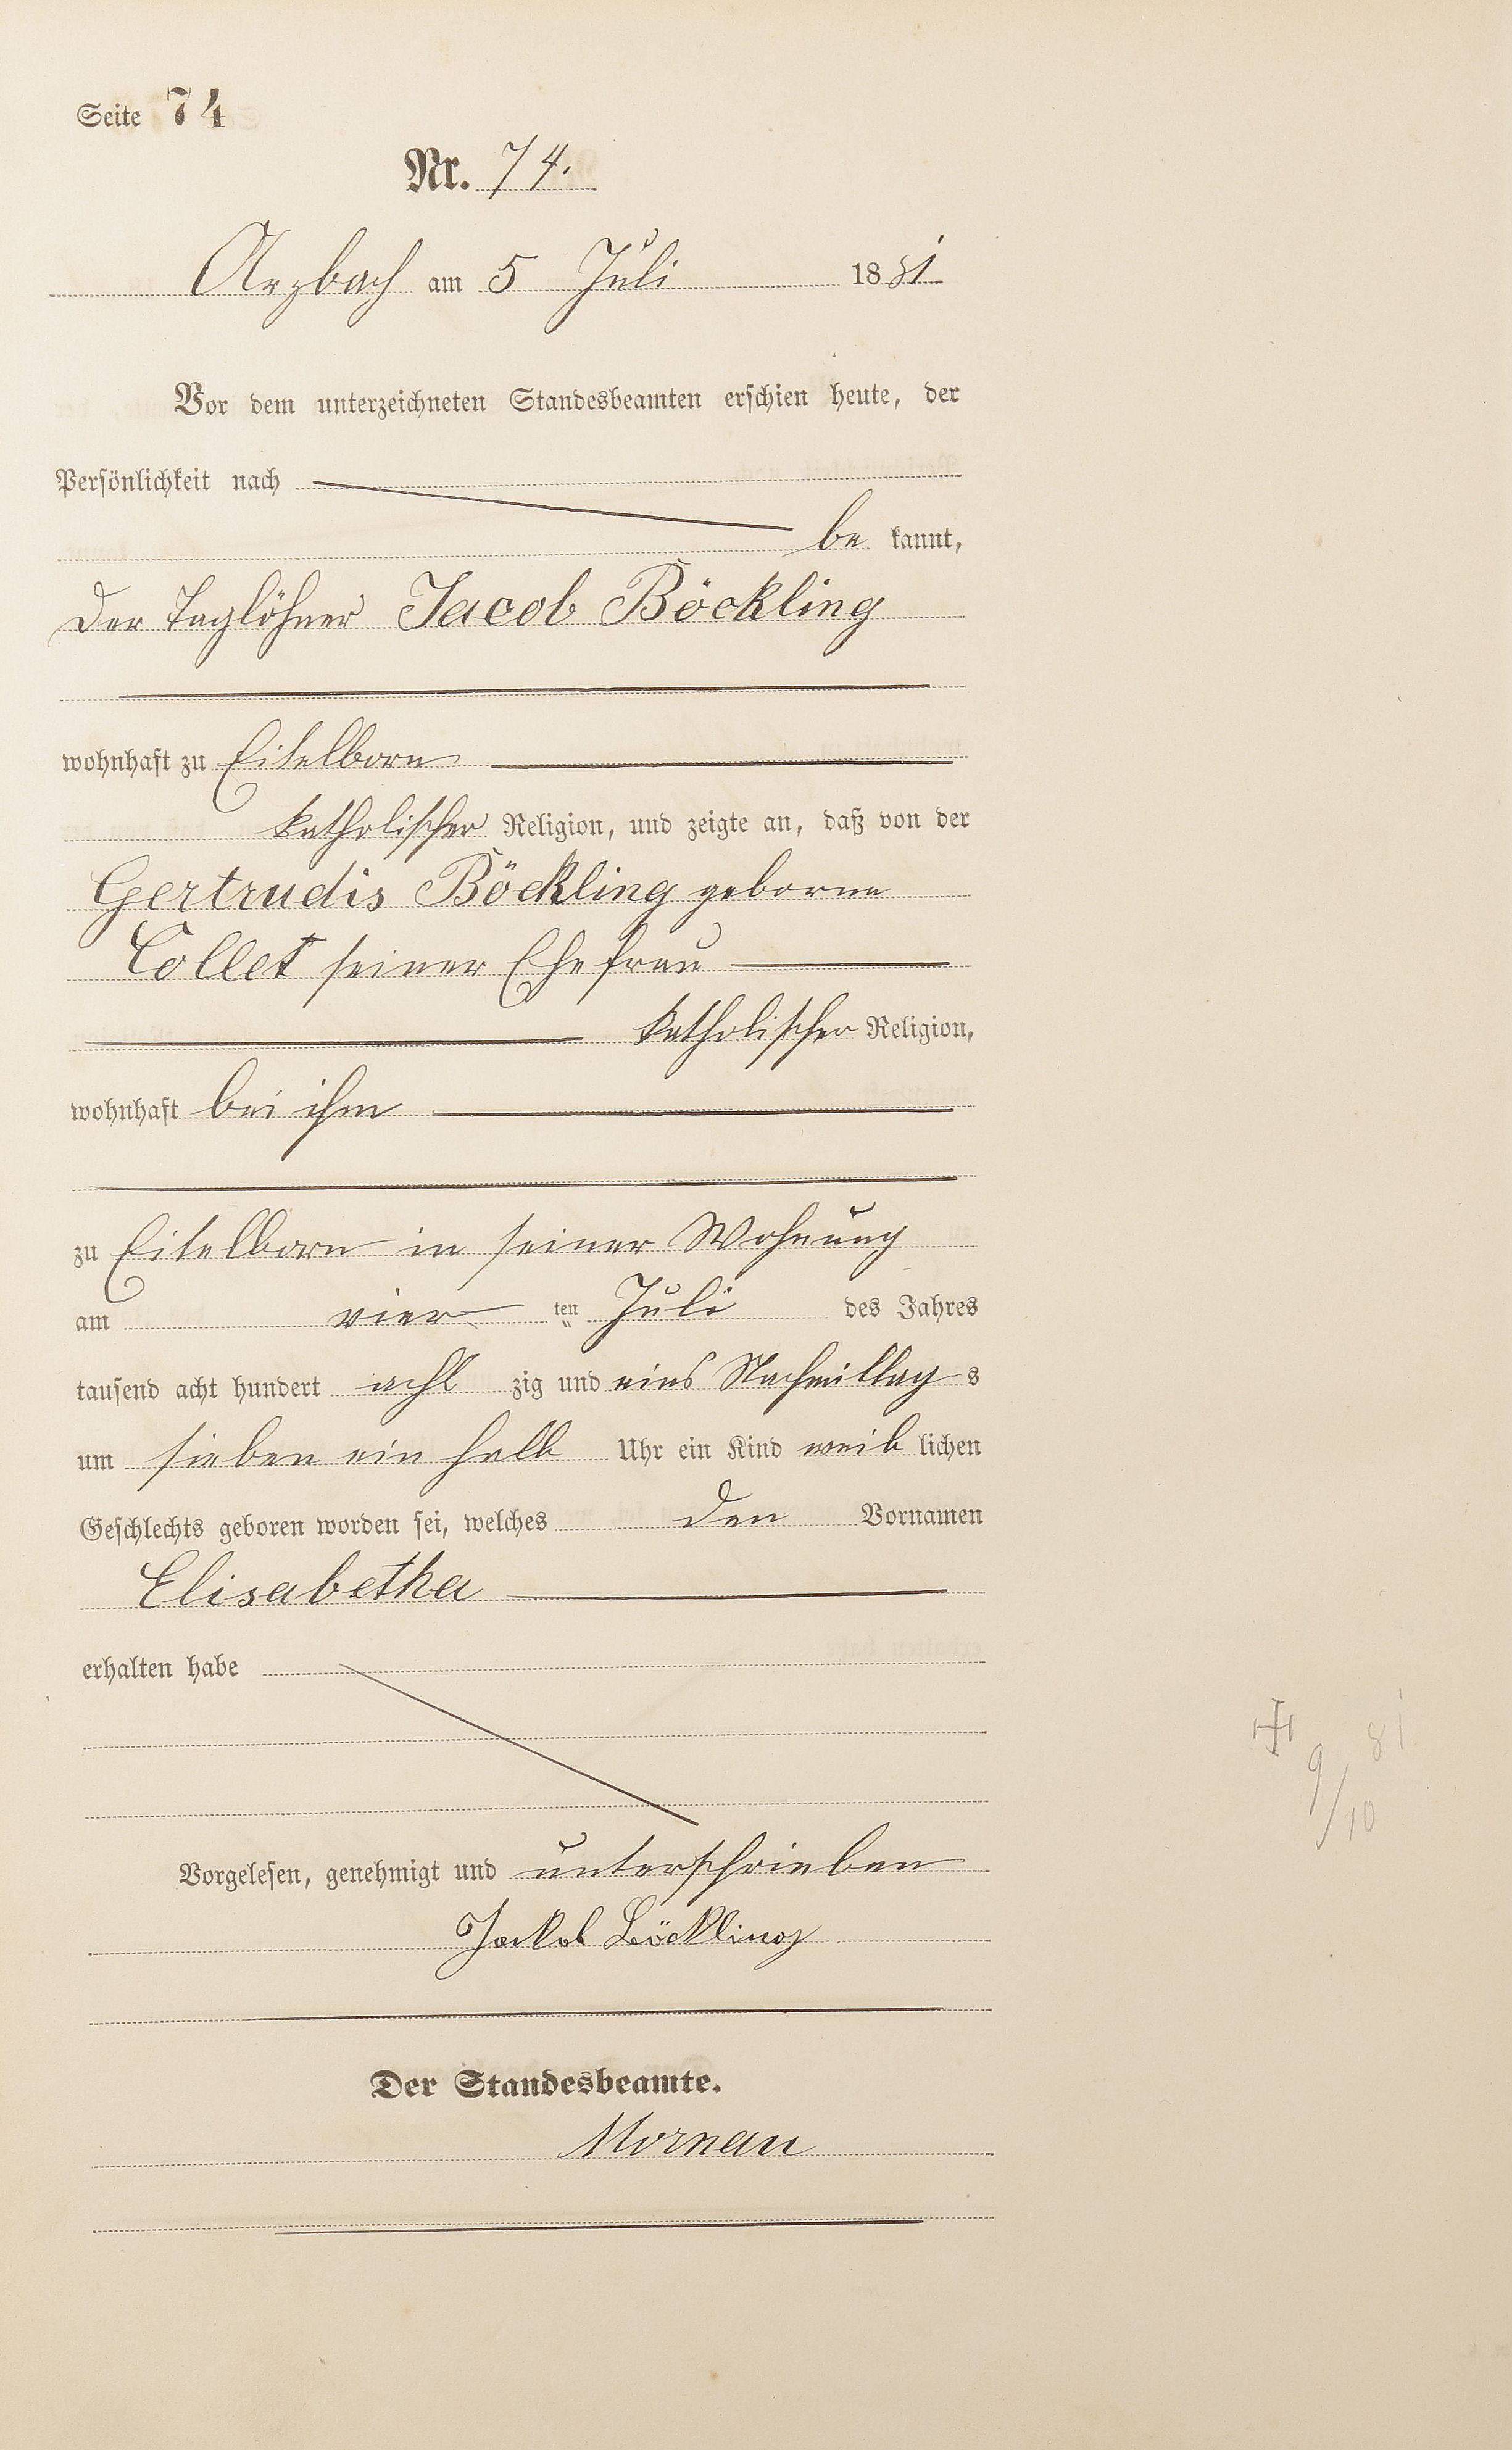 Seite 74
Nr. 74.
Arzbach am 5 Juli 1881
Vor dem unterzeichneten Standesbeamten erschien heute, der
Persönlichkeit nach
be kannt,
Der Taglöhner Jacob Böckling
wohnhaft zu Eitelborn
katholischer Religion, und zeigte an, daß von der
Gertrudis Böckling geborne
Collet seiner Ehefrau
katholischer Religion,
wohnhaft bei ihm
zu Eitelborn in seiner Wohnung
am vier ten Juli des Jahres
tausend acht hundert acht zig und eins Nachmittag s
um sieben ein halb Uhr ein Kind weib lichen
Geschlechts geboren worden sei, welches den Vornamen
Elisabetha
erhalten habe
+ 9/10 81
Vorgelesen, genehmigt und unterschrieben
Jackob Böckling
Der Standesbeamte.
Mornau